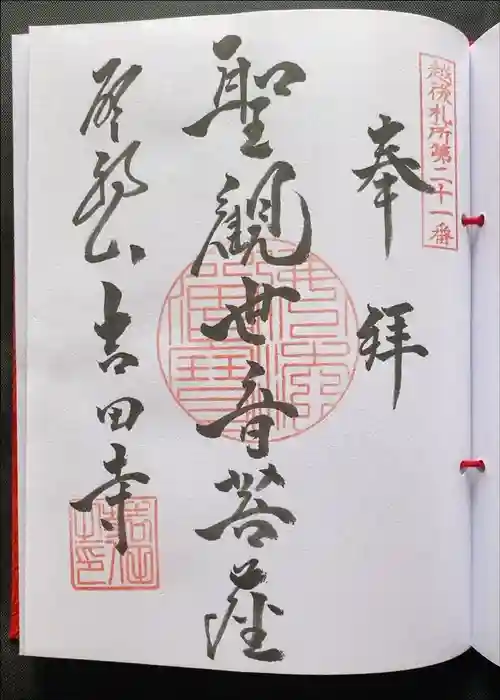 越後札所第二十一番
奉拝
聖觀世音菩薩
吉田寺